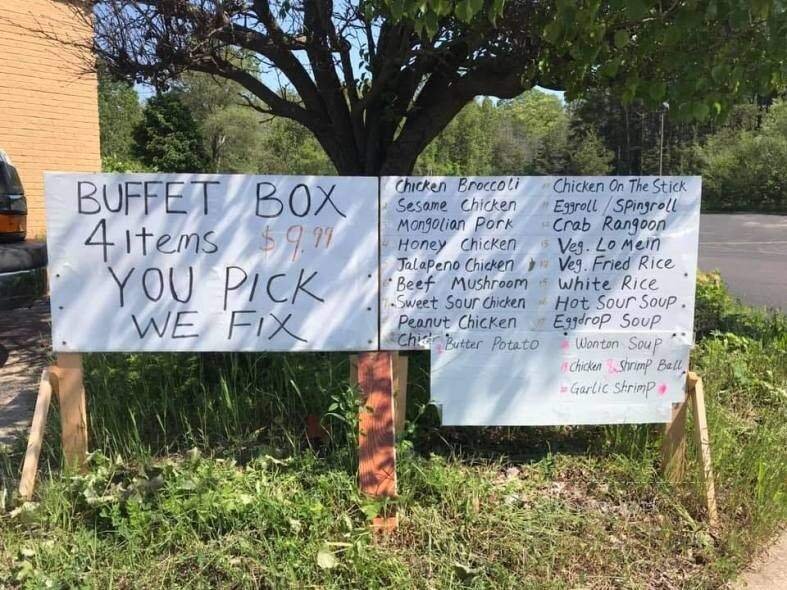 BUFFET BOX
4 items $9.99
YOU PICK
WE FIX
Chicken Broccoli
Sesame Chicken
Mongolian Pork
Honey Chicken
Jalapeno Chicken
Beef Mushroom
Sweet Sour Chicken
Peanut Chicken
Butter Potato
Chicken On The Stick
Eggroll / Spingroll
Crab Rangoon
Veg. Lo Mein
Veg. Fried Rice
White Rice
Hot Sour Soup
Eggdrop Soup
Wonton Soup
Chicken & Shrimp Ball
Garlic Shrimp